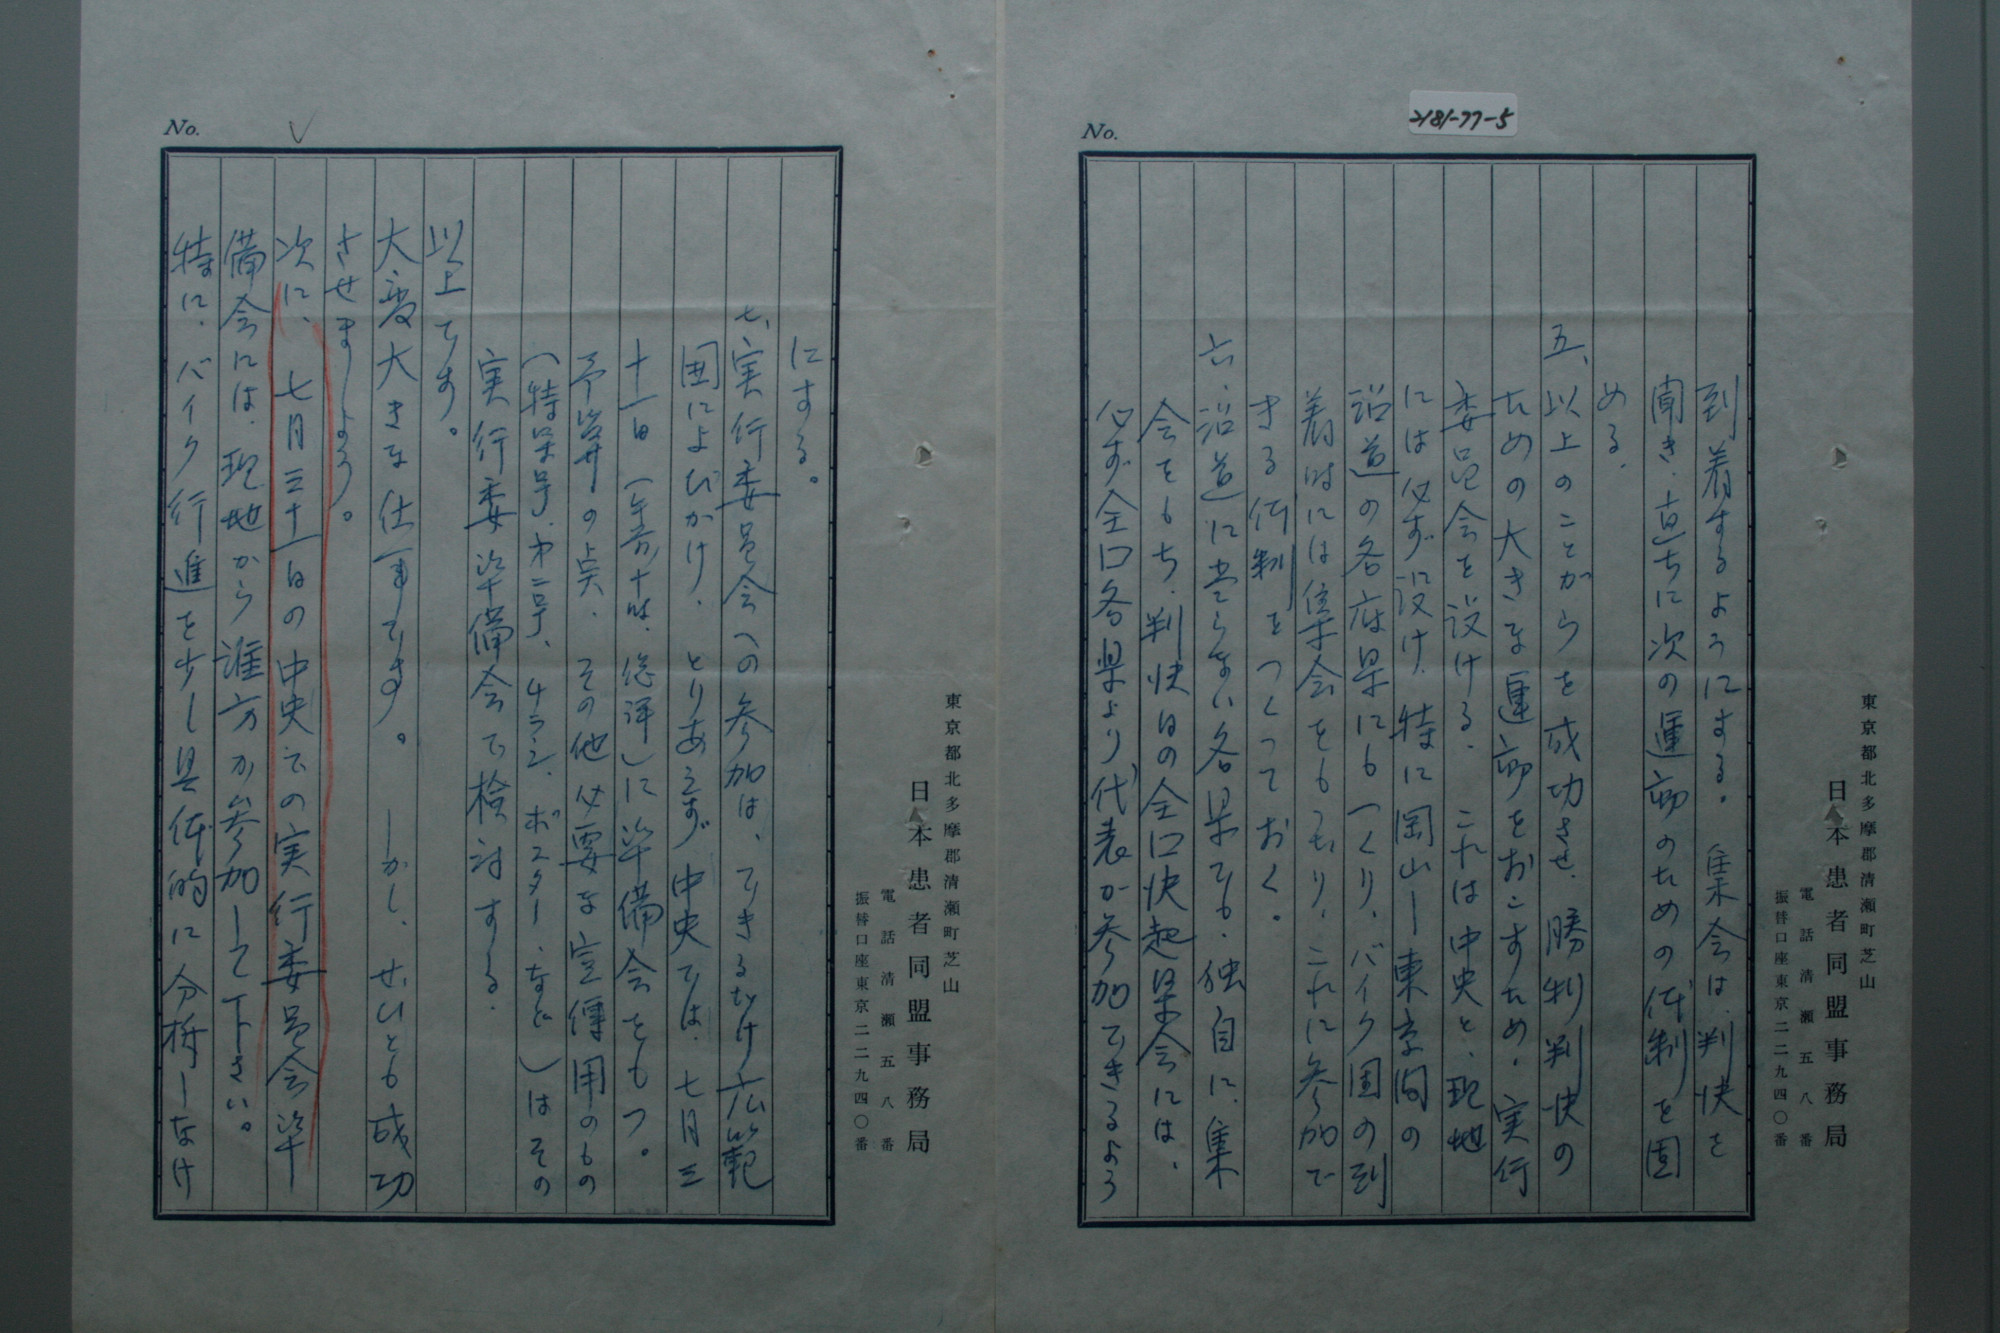 No.
2181-77-5
到着するようにする。集会は、判決を
聞き、直ちに次の運動のための体制を固
める。
五、以上のことがらを成功させ、勝利判決の
ための大きな運動をおこすため、実行
委員会を設ける。これは中央と、現地
には必ず設け、特に岡山―東京間の
沿道の各府県にもつくり、バイク団の到
着時には集会をもつたり、これに参加で
きる体制をつくっておく。
六、沿道に当らない各県でも、独自に、集
会をもち、判決日の全口決起集会には、
必ず全口各県より代表が参加できるよう
東京都北多摩郡清瀬町芝山
日本患者同盟事務局
電話清瀬五八番
振替口座東京二二九四〇番
No.
にする。
七、実行委員会への参加は、できるだけ広範
囲によびかけ、とりあえず中央では、七月三
十一日(午前十時、総評)に準備会をもつ。
予算の点、その他必要な宣傳用のもの
(特集号、第二号、チラシ、ポスター、など)はその
実行委準備会で検討する。
以上です。
大変大きな仕事です。しかし、ぜひとも成功
させましょう。
次に、七月三十一日の中央での実行委員会準
備会には、現地から誰方か参加して下さい。
特に、バイク行進を少し具体的に分析しなけ
東京都北多摩郡清瀬町芝山
日本患者同盟事務局
電話清瀬五八番
振替口座東京二二九四〇番